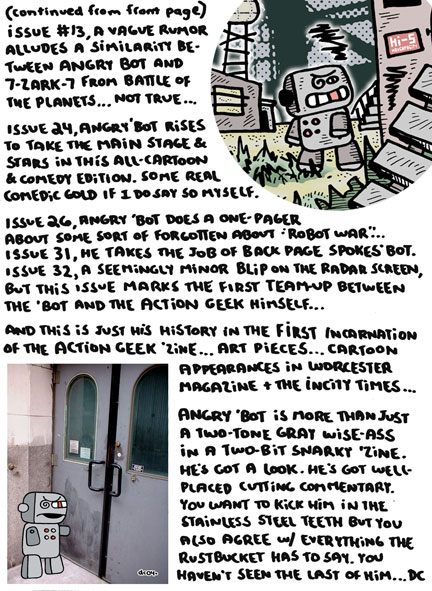 (continued from front page)
ISSUE #13, A VAGUE RUMOR
ALLUDES A SIMILARITY BE-
TWEEN ANGRY BOT AND
7-ZARK-7 FROM BATTLE OF
THE PLANETS... NOT TRUE...
ISSUE 24, ANGRY 'BOT RISES
TO TAKE THE MAIN STAGE &
STARS IN THIS ALL-CARTOON
& COMEDY EDITION. SOME REAL
COMEDIC GOLD IF I DO SAY SO MYSELF.
ISSUE 26, ANGRY 'BOT DOES A ONE-PAGER
ABOUT SOME SORT OF FORGOTTEN ABOUT "ROBOT WAR"...
ISSUE 31, HE TAKES THE JOB OF BACK PAGE SPOKES'BOT.
ISSUE 32, A SEEMINGLY MINOR BLIP ON THE RADAR SCREEN,
BUT THIS ISSUE MARKS THE FIRST TEAM-UP BETWEEN
THE 'BOT AND THE ACTION GEEK HIMSELF...
AND THIS IS JUST HIS HISTORY IN THE FIRST INCARNATION
OF THE ACTION GEEK 'ZINE... ART PIECES... CARTOON
APPEARANCES IN WORCESTER
MAGAZINE + THE INCITY TIMES...
ANGRY 'BOT IS MORE THAN JUST
A TWO-TONE GRAY WISE-ASS
IN A TWO-BIT SNARKY 'ZINE.
HE'S GOT A LOOK. HE'S GOT WELL-
PLACED CUTTING COMMENTARY.
YOU WANT TO KICK HIM IN THE
STAINLESS STEEL TEETH BUT YOU
ALSO AGREE W/ EVERYTHING THE
RUSTBUCKET HAS TO SAY. YOU
HAVEN'T SEEN THE LAST OF HIM... DC
Hi-5